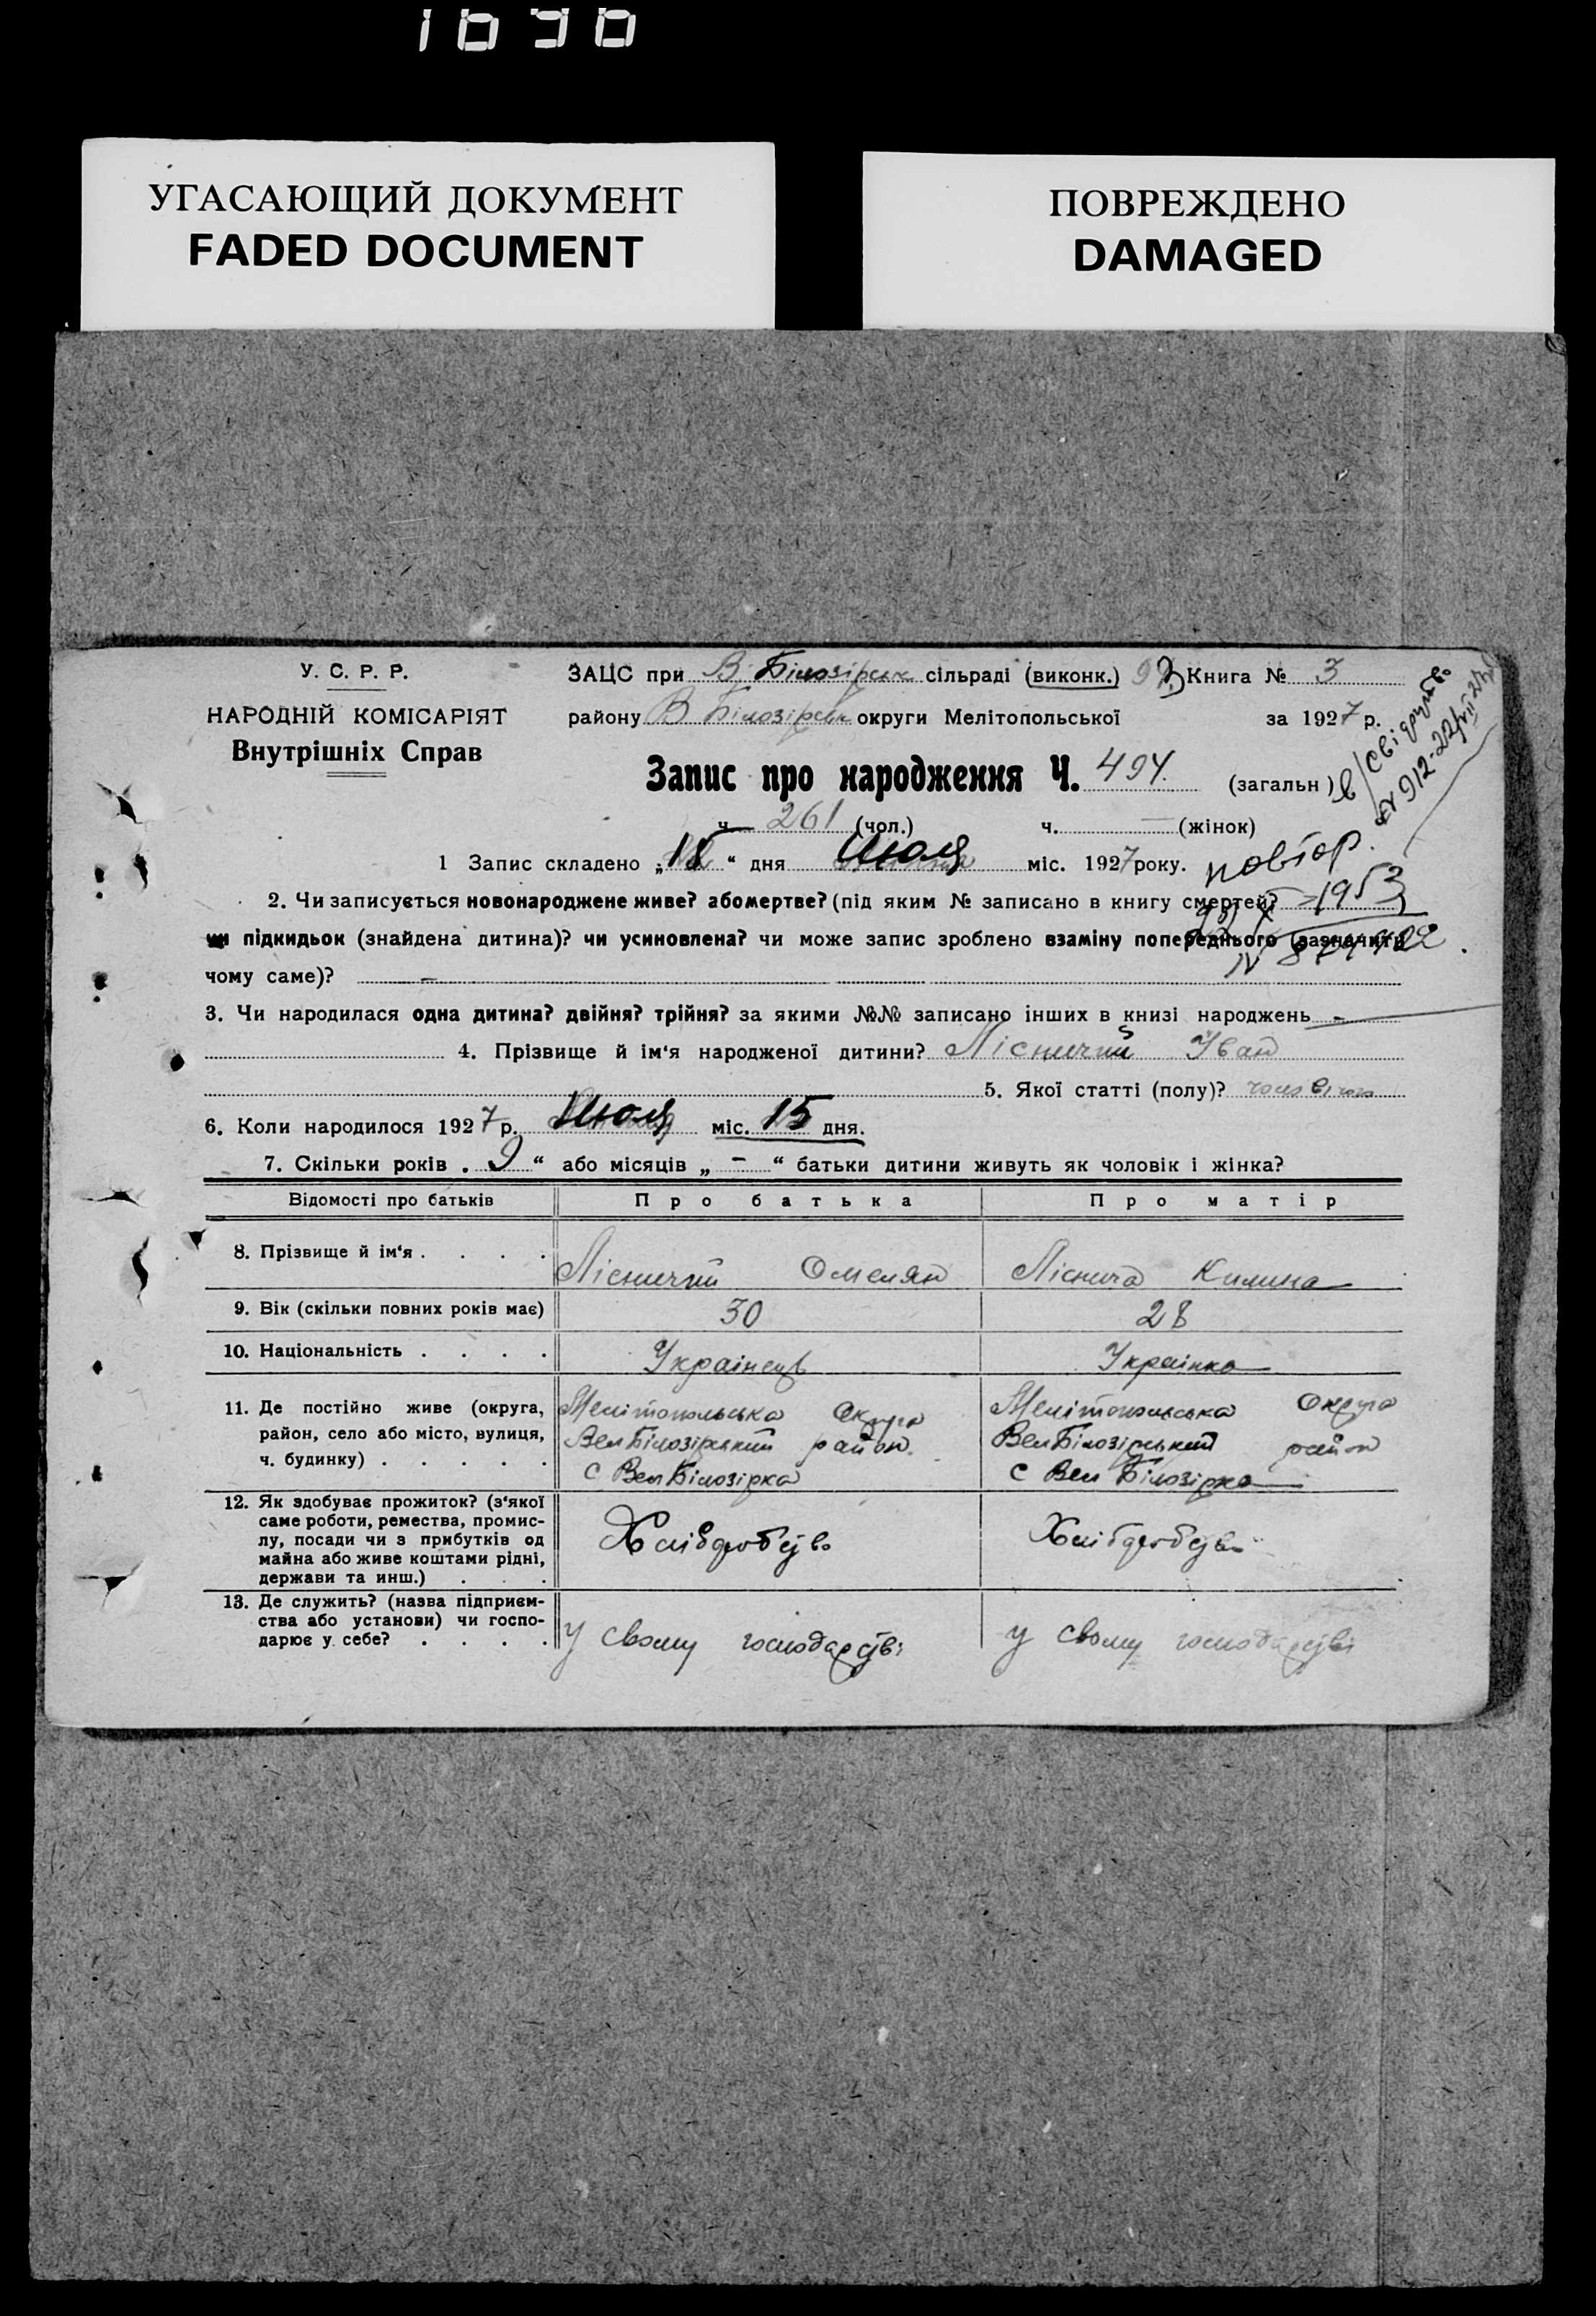 1696
УГАСАЮЩИЙ ДОКУМЕНТ
FADED DOCUMENT
ПОВРЕЖДЕНО
DAMAGED
У. С. Р. Р.
НАРОДНІЙ КОМІСАРІЯТ
Внутрішніх Справ
ЗАЦС при В. Білозірськ сільраді (виконк.) 93 Книга № 3
району В Білозірськ округи Мелітопольської за 1927 р.
Запис про народження Ч. 494. (загальн)
ч. 261 (чол.) ч. — (жінок)
в/свідоцтво
№ 912-22/VII-27р
1 Запис складено „18“ дня Июля міс. 1927 року.
повтор.
2. Чи записується новонароджене живе? або мертве? (під яким № записано в книгу смертей? 1953
чи підкидьок (знайдена дитина)? чи усиновлена? чи може запис зроблено взаміну попереднього (зазначити
чому саме)? —
3. Чи народилася одна дитина? двійня? трійня? за якими №№ записано інших в книзі народжень -
4. Прізвище й ім'я народженої дитини? Лісничий Іван
5. Якої статті (полу)? чоловічого
6. Коли народилося 1927 р. Июля міс. 15 дня.
7. Скільки років „ 9 “ або місяців „ - “ батьки дитини живуть як чоловік і жінка?
Відомості про батьків Про батька Про матір
8. Прізвище й ім'я . . . . Лісничий Омелян Ліснича Килина
9. Вік (скільки повних років має) 30 28
10. Національність . . . . Українець Українка
11. Де постійно живе (округа, Мелітопольська Округа Мелітопольська Округа
район, село або місто, вулиця, Вел Білозірський район. Вел Білозірський район
ч. будинку) . . . . . с Вел Білозірка с Вел Білозірка
12. Як здобуває прожиток? (з'якої
саме роботи, ремества, промис-
лу, посади чи з прибутків од Хліборобство Хліборобство
майна або живе коштами рідні,
держави та инш.) . . .
13. Де служить? (назва підприєм-
ства або установи) чи госпо-
дарює у себе? . . . . у свому господарстві у свому господарстві